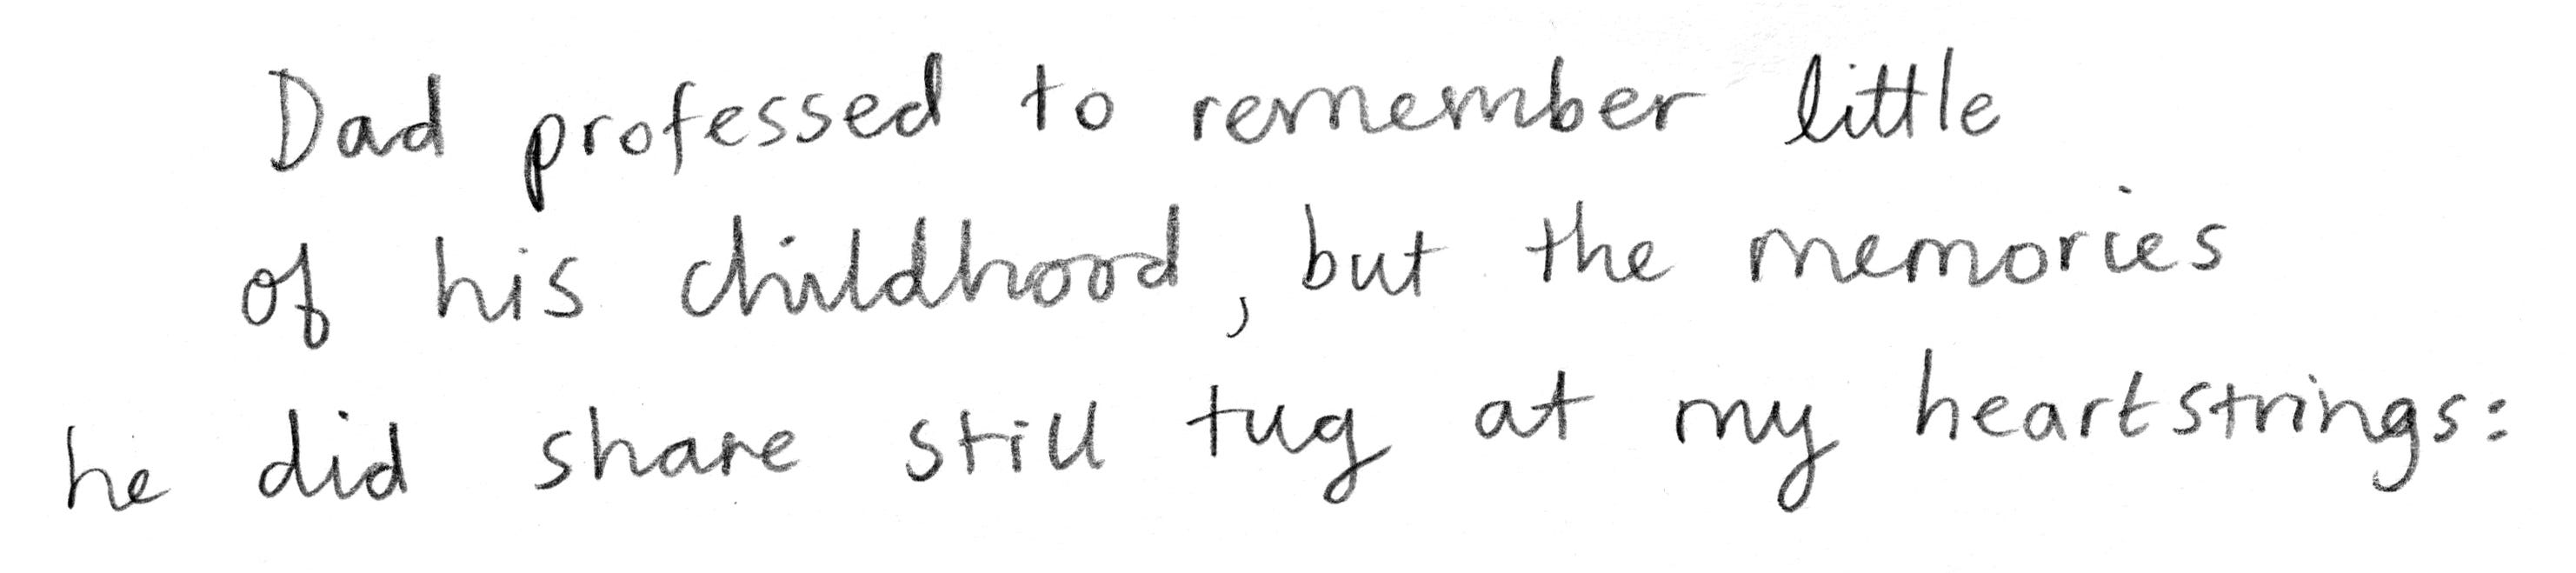 Dad professed to remember little
of his childhood, but the memories
he did share still tug at my heartstrings: